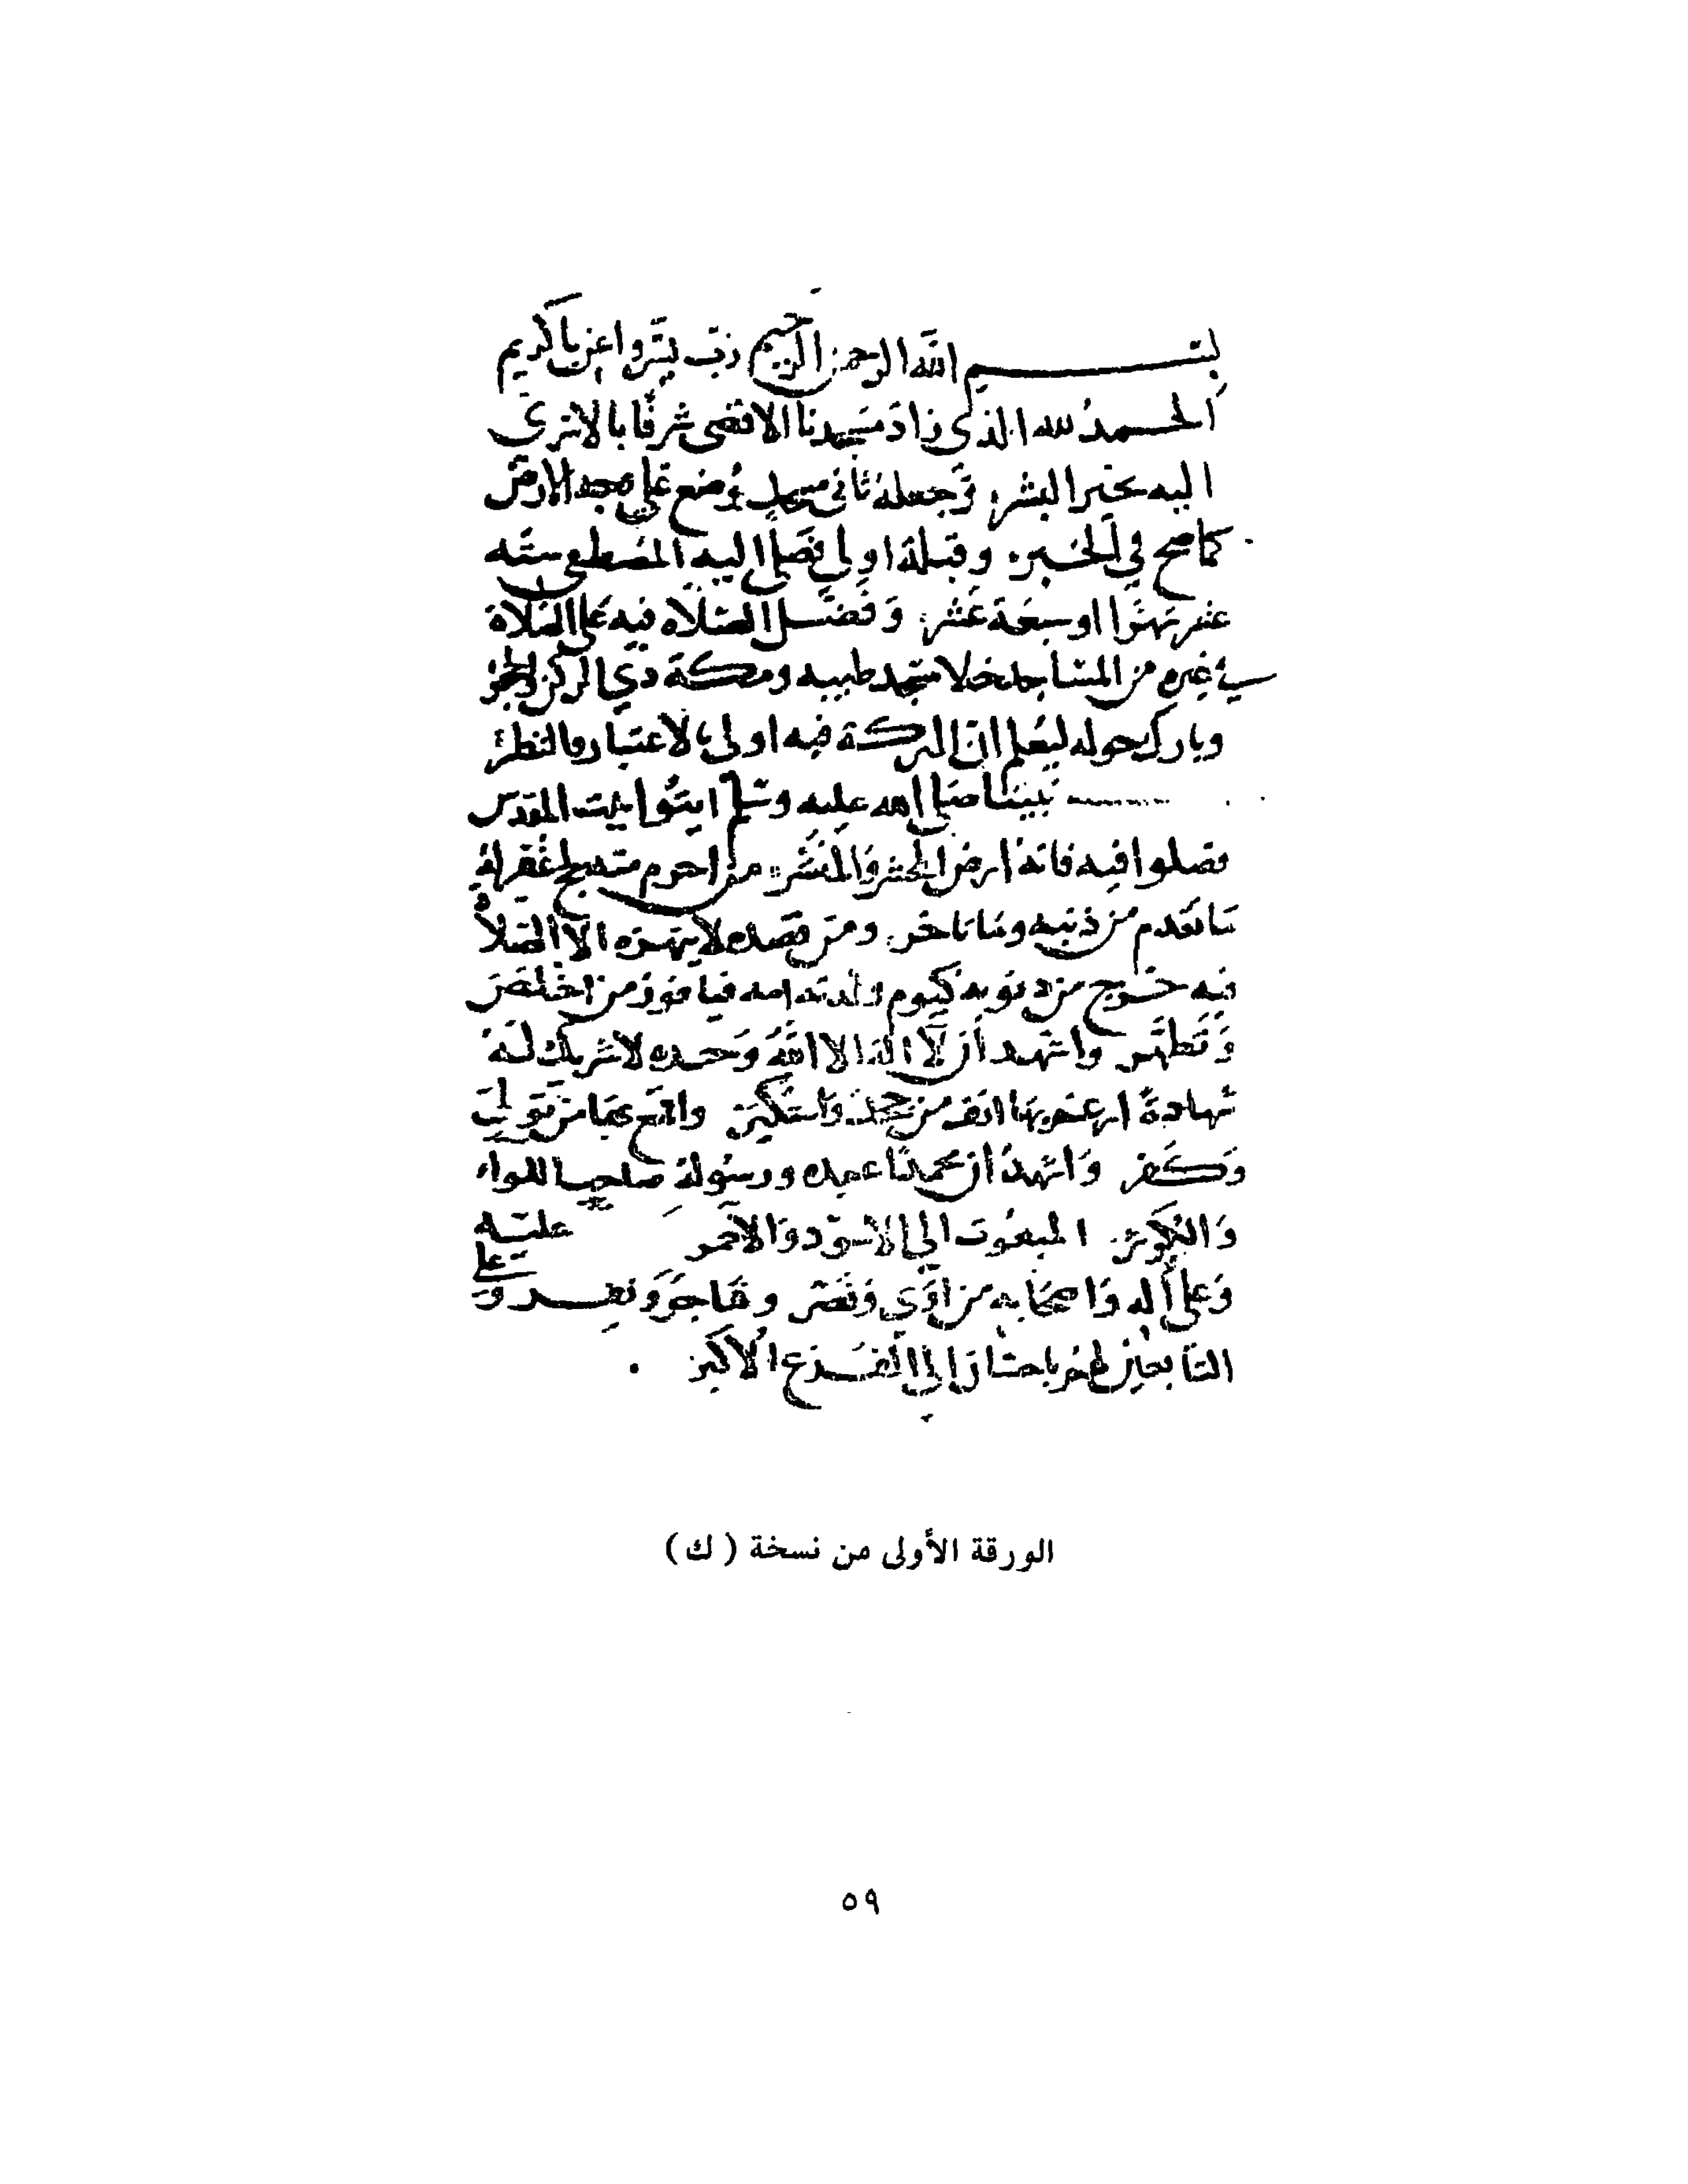 بسم الله الرحمن الرحيم رب يسر واعن يا كريم
الحمد لله الذي زاد مسجدنا الاقصى شرفا بالاسرى
اليه بخير البشر وجعله ثاني مسجد وضع على وجه الارض
كما صح في الخبر وقبلة اولى فصلى اليه المصطفى ستة
عشر شهرا او سبعة عشر وفضل الصلاة فيه على الصلاة
في غيره من المساجد خلا مسجد طيبه ومكة ذي الركن والحجر
وبارك حوله ليعلم ان البركة فيه اولى بالاعتبار والنظر
نبينا صلى الله عليه وسلم ايتوا بيت المقدس
فصلوا فيه فانه ارض المحشر والمنشر من احرم منه بحج غفر له
ما تقدم من ذنبه وما تاخر ومن قصده لا ينهزه الا الصلاة
فيه خرج من ذنوبه كيوم ولدته امه فيا فوز من اخلص
وتطهر واشهد ان لا اله الا الله وحده لا شريك له
شهادة ارغم بها انف من جحد واستكبر
وكفر واشهد ان محمدا عبده ورسوله صاحب اللواء
والكوثر المبعوث الى الاسود والاحمر عليه
وعلى اله واصحابه من اوى ونصر وهاجر وعلى
التابعين لهم باحسان الى الفزع الاكبر
الورقة الأولى من نسخة (ك)
٥٩